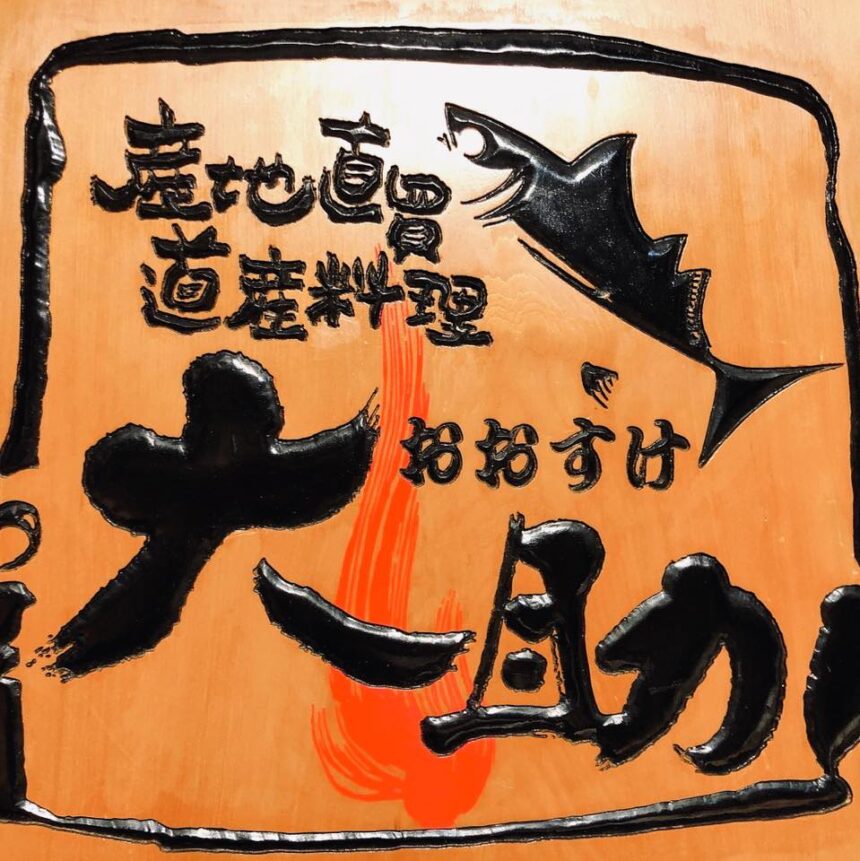 産地直買
道産料理
おおすけ
大助